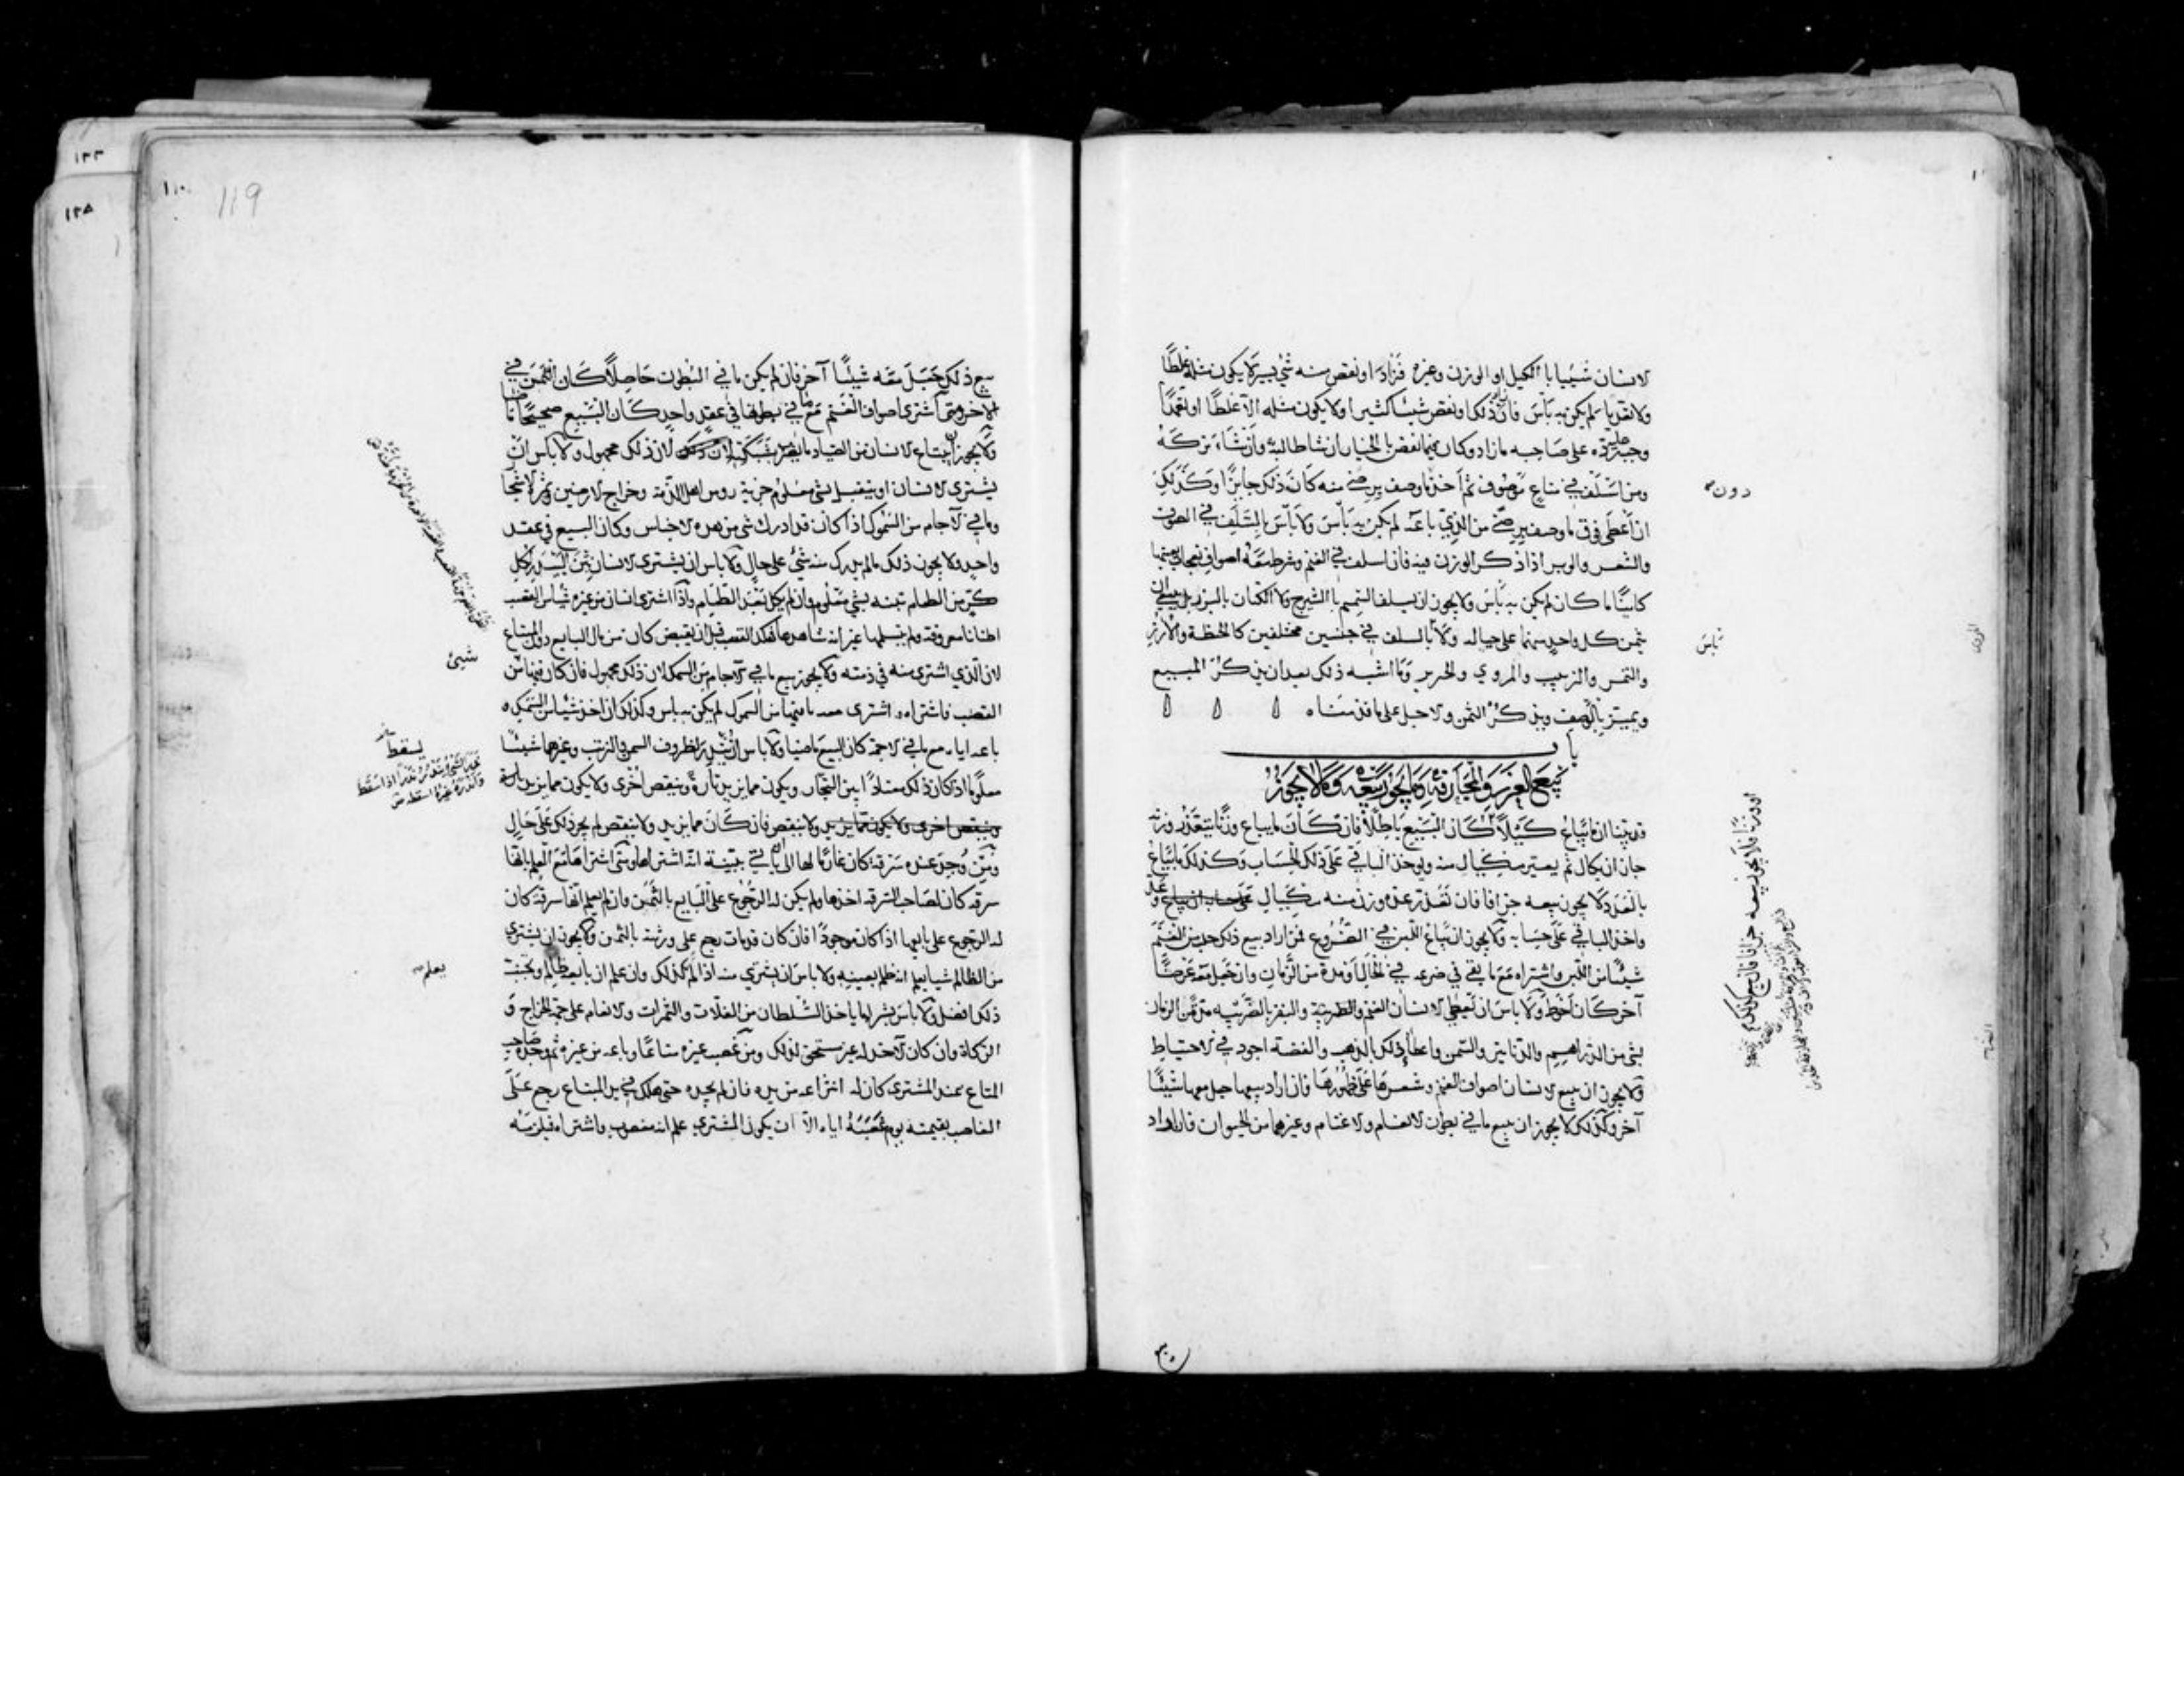 لانسان شيئا بالكيل او الوزن وغيره فزاد او نقص منه شئ يسير لا يكون مثله غلطا
ولا تعديا لم يكن به بأس فان ذلك او نقص شيئا كثيرا ولا يكون مثله الا غلطا او تعمدا
وجب رده على صاحبه ما زاد وكان فيما نقص بالخيار ان شاء طالبه وان شاء تركه
ومن اسلف في متاع موصوف ثم اخذ ما وصف برضى منه كان ذلك جايزا وكذلك
ان اعطى فوق ما وصف برضى من الذي باعه لم يكن به بأس ولا بأس بالسلف في الصوف
والشعر والوبر اذا ذكر الوزن فيه فان اسلف في الغنم وشرط معه اصواف نعجات بعينها
كاينا ما كان لم يكن به بأس ولا يجوز ان يسلف السمسم بالشيرج ولا الكتان بالبزر بل
ثمن كل واحد منهما على حياله ولا بالسلف في جنسين مختلفين كالحنطة والارز
والتمر والزبيب والمروي والحرير وما اشبه ذلك بعد ان يذكر المبيع
ويميز بالوصف ويذكر الثمن والاجل على ما قدمناه
باب
بيع الغرر والمجازفة وما يجوز بيعه وما لا يجوز
قد بينا ان ما يباع كيلا كان البيع باطلا فان كان ما يباع وزنا يتعذر وزنه
جاز ان يكال ثم يعير مكيال منه ويوخذ الباقي على ذلك الحساب وكذلك ما يباع
بالعدد لا يجوز بيعه جزافا فان تعذر عده وزن منه مكيال على حساب ان يباع وعد
واخذ الباقي على حسابه ولا يجوز ان يباع اللبن في الضروع فمن اراد بيع ذلك حلب من الغنم
شيئا من اللبن واشتراه مع ما بقي في ضرعه في الحال او مدة من الزمان وان جعل معه عرضا
آخر كان احوط ولا باس ان يعطي الانسان الغنم والبقر بالضريبة مدة من الزمان
بشئ من الدراهم والدنانير والسمن واعطا ذلك بالذهب والفضة اجود في الاحتياط
ولا يجوز ان يبيع الانسان اصواف الغنم وشعرها على ظهورها فان اراد بيعها جعل معها شيئا
آخر وكذلك لا يجوز ان يبيع ما في بطون الانعام والاغنام وغيرهما من الحيوان فان اراد
دون
بأس
او وزنا فلا يجوز بيعه جزافا فان بيع كذلك
119
بيع ذلك جعل معه شيئا آخر فان لم يكن ما في البطون حاصلا كان الثمن في
الآخر ومتى اشترى اصواف الغنم مع ما في بطونها في عقد واحد كان البيع صحيحا ماضيا
ولا يجوز ان يبتاع الانسان من الصياد ما يضرب بشبكته لان ذلك لان ذلك مجهول ولا بأس ان
يشتري الانسان او يتقبل بشئ معلوم جزية روس اهل الذمة وخراج الارضين وثمر الاشجار
وما في الآجام من السموك اذا كان قد ادرك شئ من هذه الاجناس وكان البيع في عقد
واحد ولا يجوز ذلك ما لم يدرك منه شئ على حال ولا باس ان يشتري الانسان تبن البيدر لكل
كر من الطعام تبنه بشئ معلوم وان لم يكل بعد الطعام واذا اشترى انسان من غيره شيئا من القصب
اطنانا معروفة ولم يتسلمها غير انه شاهدها فهلك القصب قبل ان يقبض كان من مال البايع دون المبتاع
لان الذي اشترى منه في ذمته ولا يجوز بيع ما في الآجام من السمك لان ذلك مجهول فان كان فيها من
القصب فاشتراه واشترى معه ما فيها من السموك لم يكن به باس وكذلك ان اخذ شيئا من السمك و
باعه اياه مع ما في الاجمة كان البيع ماضيا ولا باس ان يندر لظروف السمن والزيت وغيرهما شيئا
معلوما اذا كان ذلك معتادا بين التجار ويكون مما يزيد تارة وينقص اخرى ولا يكون مما يزيد تارة
وينقص اخرى ولا يكون مما يزيد ولا ينقص فان كان مما يزيد ولا ينقص لم يجز ذلك على حال
ومن وجد عنده سرقة كان غارما لها الا ان ياتي ببينة انه اشتراها ومتى اشتراها مع العلم بانها
سرقة كان لصاحب السرقة اخذها ولم يكن له الرجوع على البايع بالثمن وان لم يعلم انها سرقة كان
له الرجوع على بايعها اذا كان موجودا فان كان قد مات رجع على ورثته بالثمن ولا يجوز ان يشتري
من الظالم شيئا يعلم انه ظلم بعينه ولا باس ان يشتري منه اذا لم كذلك وان علم ان بايعه ظالم وتجنب
ذلك افضل ولا باس بشرا ما ياخذ السلطان من الغلات والثمرات والانعام على جهة الخراج و
الزكاة وان كان الآخذ له غير مستحق لذلك ومن غصب غيره متاعا وباعه من غيره ثم وجده صاحب
المتاع عند المشتري كان له انتزاعه من يده فان لم يجده حتى هلك في يد المبتاع رجع على
الغاصب بقيمته يوم غصبه اياه الا ان يكون المشتري علم انه مغصوب واشتراه فيلزمه
شيئ
يسقط
يعلم